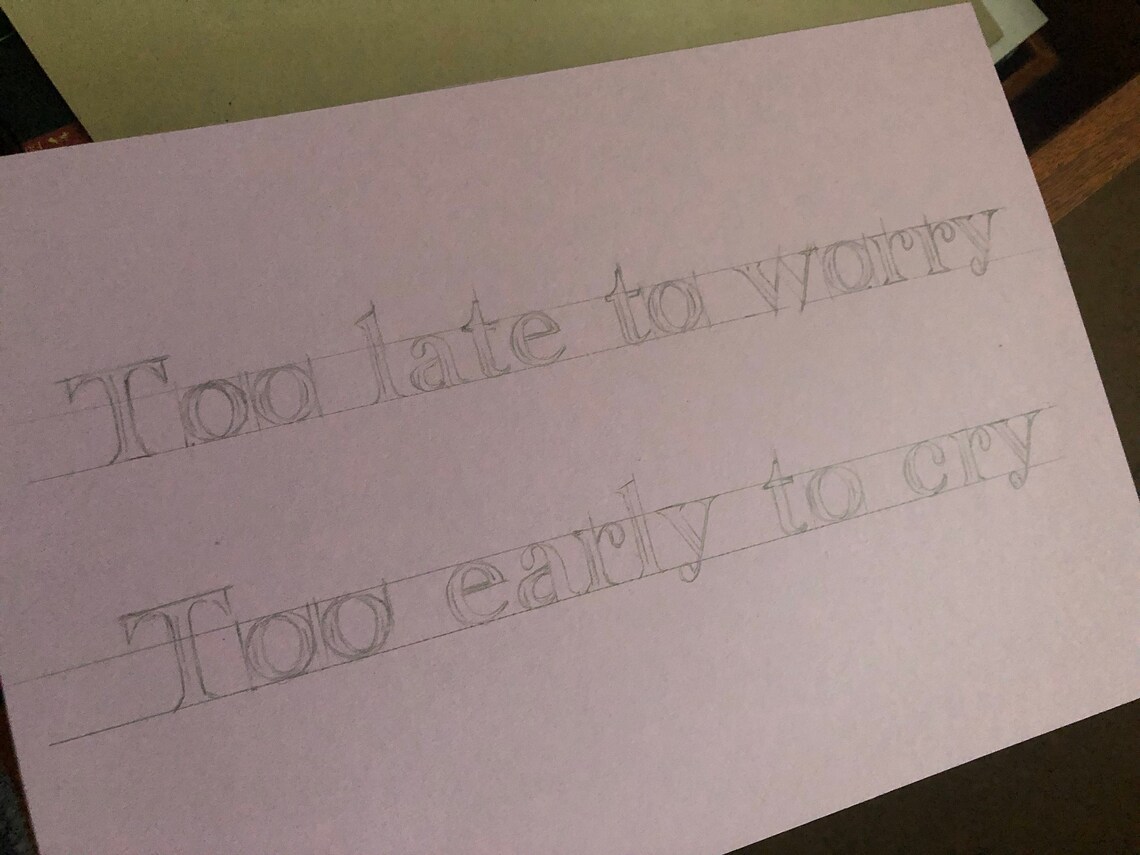 Too late to worry
Too early to cry